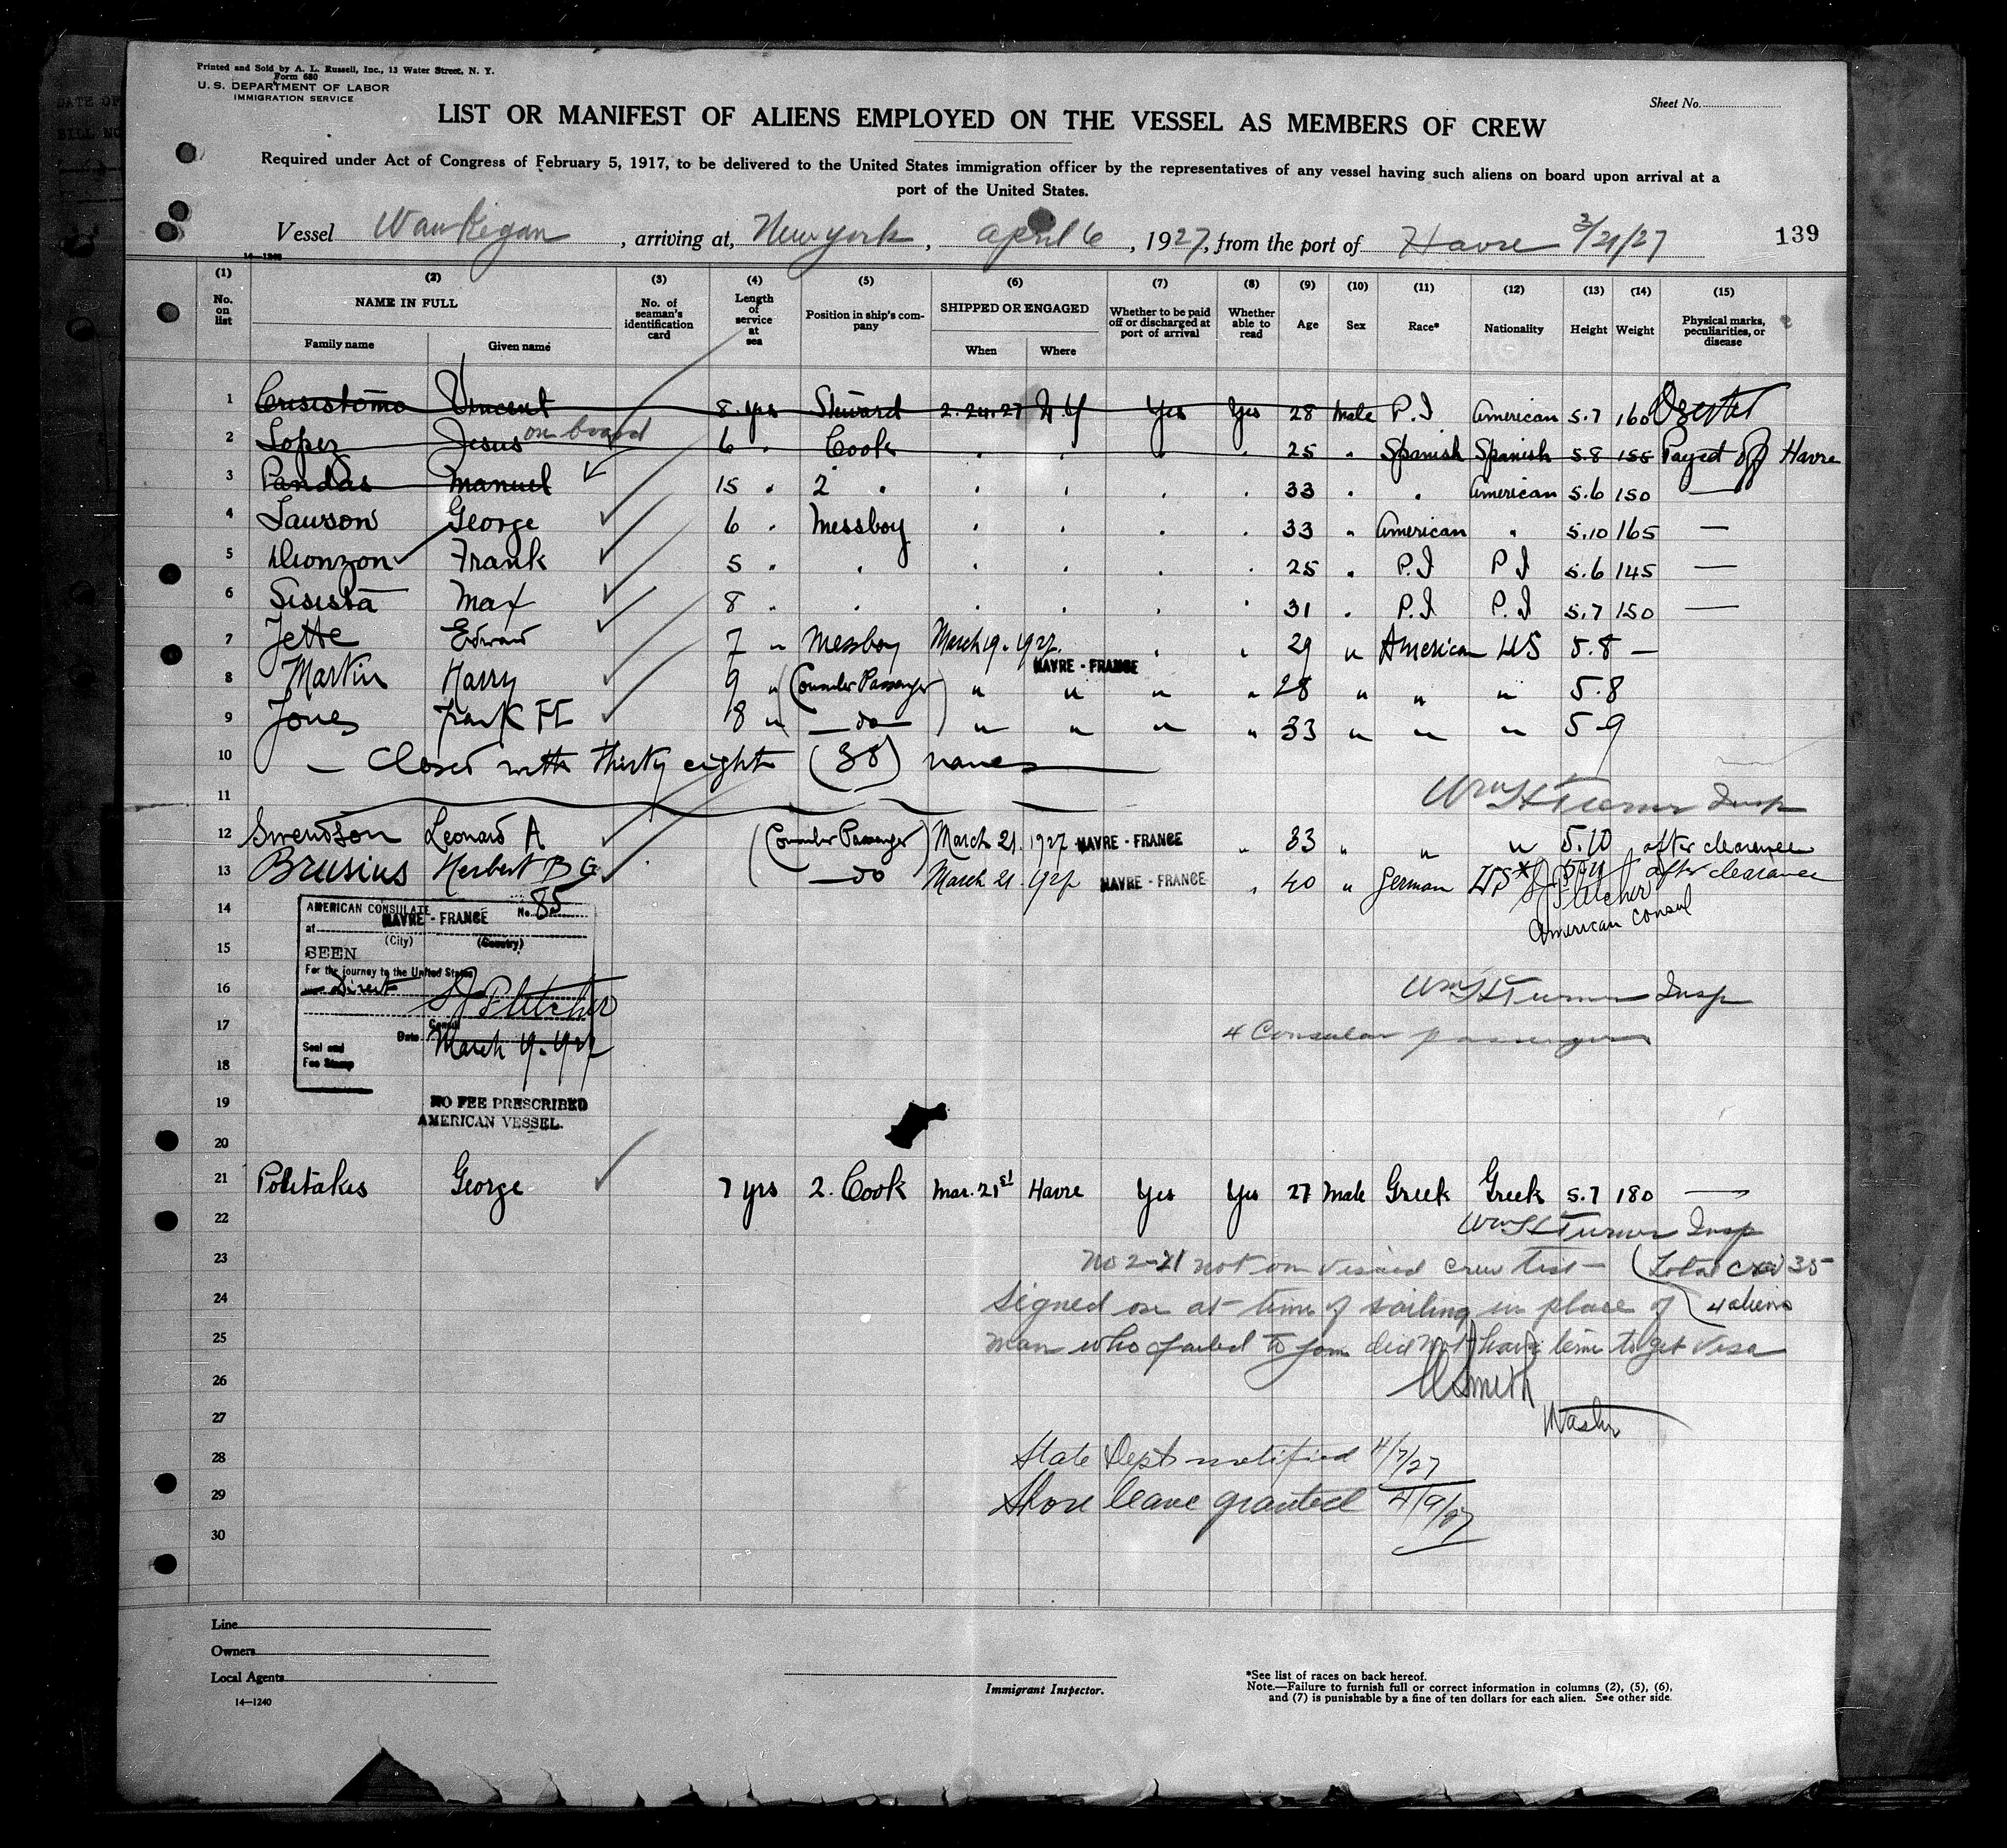 Printed and Sold by A. L. Russell, Inc., 13 Water Street, N. Y.
Form 680
U. S. DEPARTMENT OF LABOR
IMMIGRATION SERVICE
Sheet No.
LIST OR MANIFEST OF ALIENS EMPLOYED ON THE VESSEL AS MEMBERS OF CREW
Required under Act of Congress of February 5, 1917, to be delivered to the United States immigration officer by the representatives of any vessel having such aliens on board upon arrival at a
port of the United States.
Vessel Waukegan, arriving at, New York, april 6, 1927, from the port of Havre 3/21/27 139
14—1240
(1) (2) (3) (4) (5) (6) (7) (8) (9) (10) (11) (12) (13) (14) (15)
No. on list NAME IN FULL Family name Given name No. of seaman's identification card Length of service at sea Position in ship's company SHIPPED OR ENGAGED When Where Whether to be paid off or discharged at port of arrival Whether able to read Age Sex Race* Nationality Height Weight Physical marks, peculiarities, or disease
1 Crisistomo Vincent 8 yrs Steward 2.24.27 N.Y Yes Yes 28 male P.I American 5.7 160
2 Lopez Jesus on board 6 " Cook " " " " 25 " Spanish Spanish 5.8 155 Payed off Havre
3 Pandas Manuel 15 " 2 " " " " " 33 " " American 5.6 150 —
4 Lawson George 6 " Messboy " " " " 33 " American " 5.10 165 —
5 Dionzon Frank 5 " " " " " " 25 " P.I P I 5.6 145 —
6 Sisista Max 8 " " " " " " 31 " P.I P.I 5.7 150 —
7 Jette Edward 7 " Messboy March 19. 1927. " " 29 " American US 5.8 —
HAVRE - FRANCE
8 Martin Harry 9 " (Consular Passenger) " " " " 28 " " " 5.8
9 Jones Frank H 18 " —do— " " " " 33 " " " 5-9
10 — Closed with thirty eight (38) names
11 Wm H Turner Insp
12 Swendson Leonard A (Consular Passenger) March 21. 1927 HAVRE - FRANCE " 33 " " " 5.10 after clearance
13 Brusius Herbert B G. —do March 21. 1927 HAVRE - FRANCE " 40 " German US* after clearance
Pletcher
American Consul
14
AMERICAN CONSULATE No. 85
at HAVRE - FRANCE
(City) (Country)
15
SEEN
For the journey to the United States
16 Direct Pletcher Wm H Turner Insp
Consul
17 4 Consular passengers
Date March 19. 1927
Seal and
Fee Stamp
18
19
NO FEE PRESCRIBED
AMERICAN VESSEL.
20
21 Politakes George 7 yrs 2. Cook Mar. 21st Havre Yes Yes 27 Male Greek Greek 5.7 180 —
22 Wm H Turner Insp
23 No 2-21 not on visaed crew list — (Total crew 35
24 signed on at time of sailing in place of 4 aliens
25 man who failed to join did not have time to get visa
26 Smith
27
28 State Dept notified 4/7/27
29 Shore leave granted 4/9/27
30
Line
Owners
Local Agents
14—1240
Immigrant Inspector.
*See list of races on back hereof.
Note.—Failure to furnish full or correct information in columns (2), (5), (6),
and (7) is punishable by a fine of ten dollars for each alien. See other side.